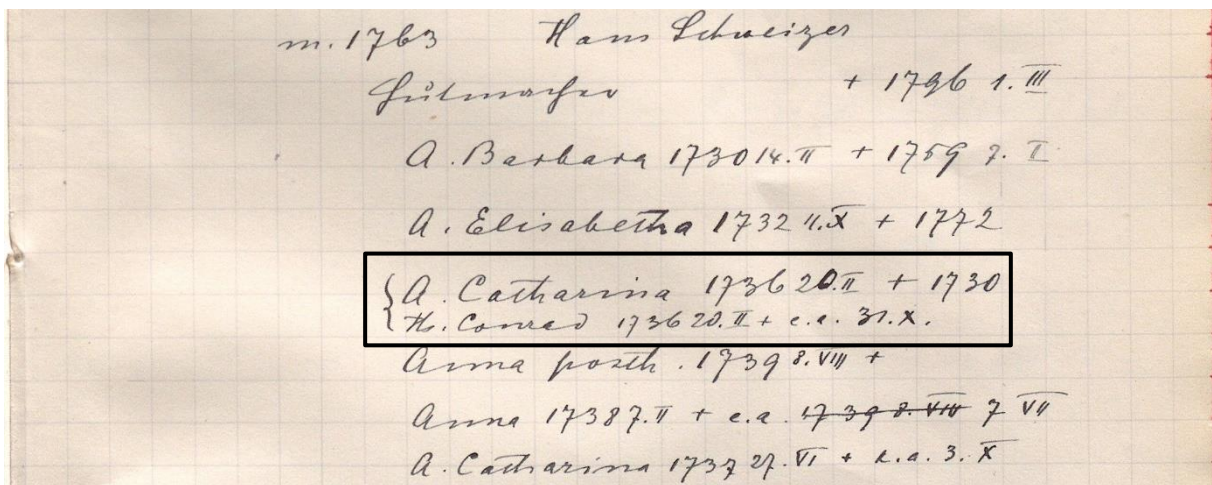 m. 1763 Hans Schweizer
Hutmacher + 1796 1. III
A. Barbara 1730 14. II + 1759 7. I
A. Elisabetha 1732 11. X + 1772
{ A. Catharina 1736 20. II + 1730
H. Conrad 1736 20. II + e.a. 31. X.
Anna posth. 1739 8. VIII +
Anna 1738 7. II + e.a. 1739 8. VIII 7 VII
A. Catharina 1737 27. VI + e.a. 3. X